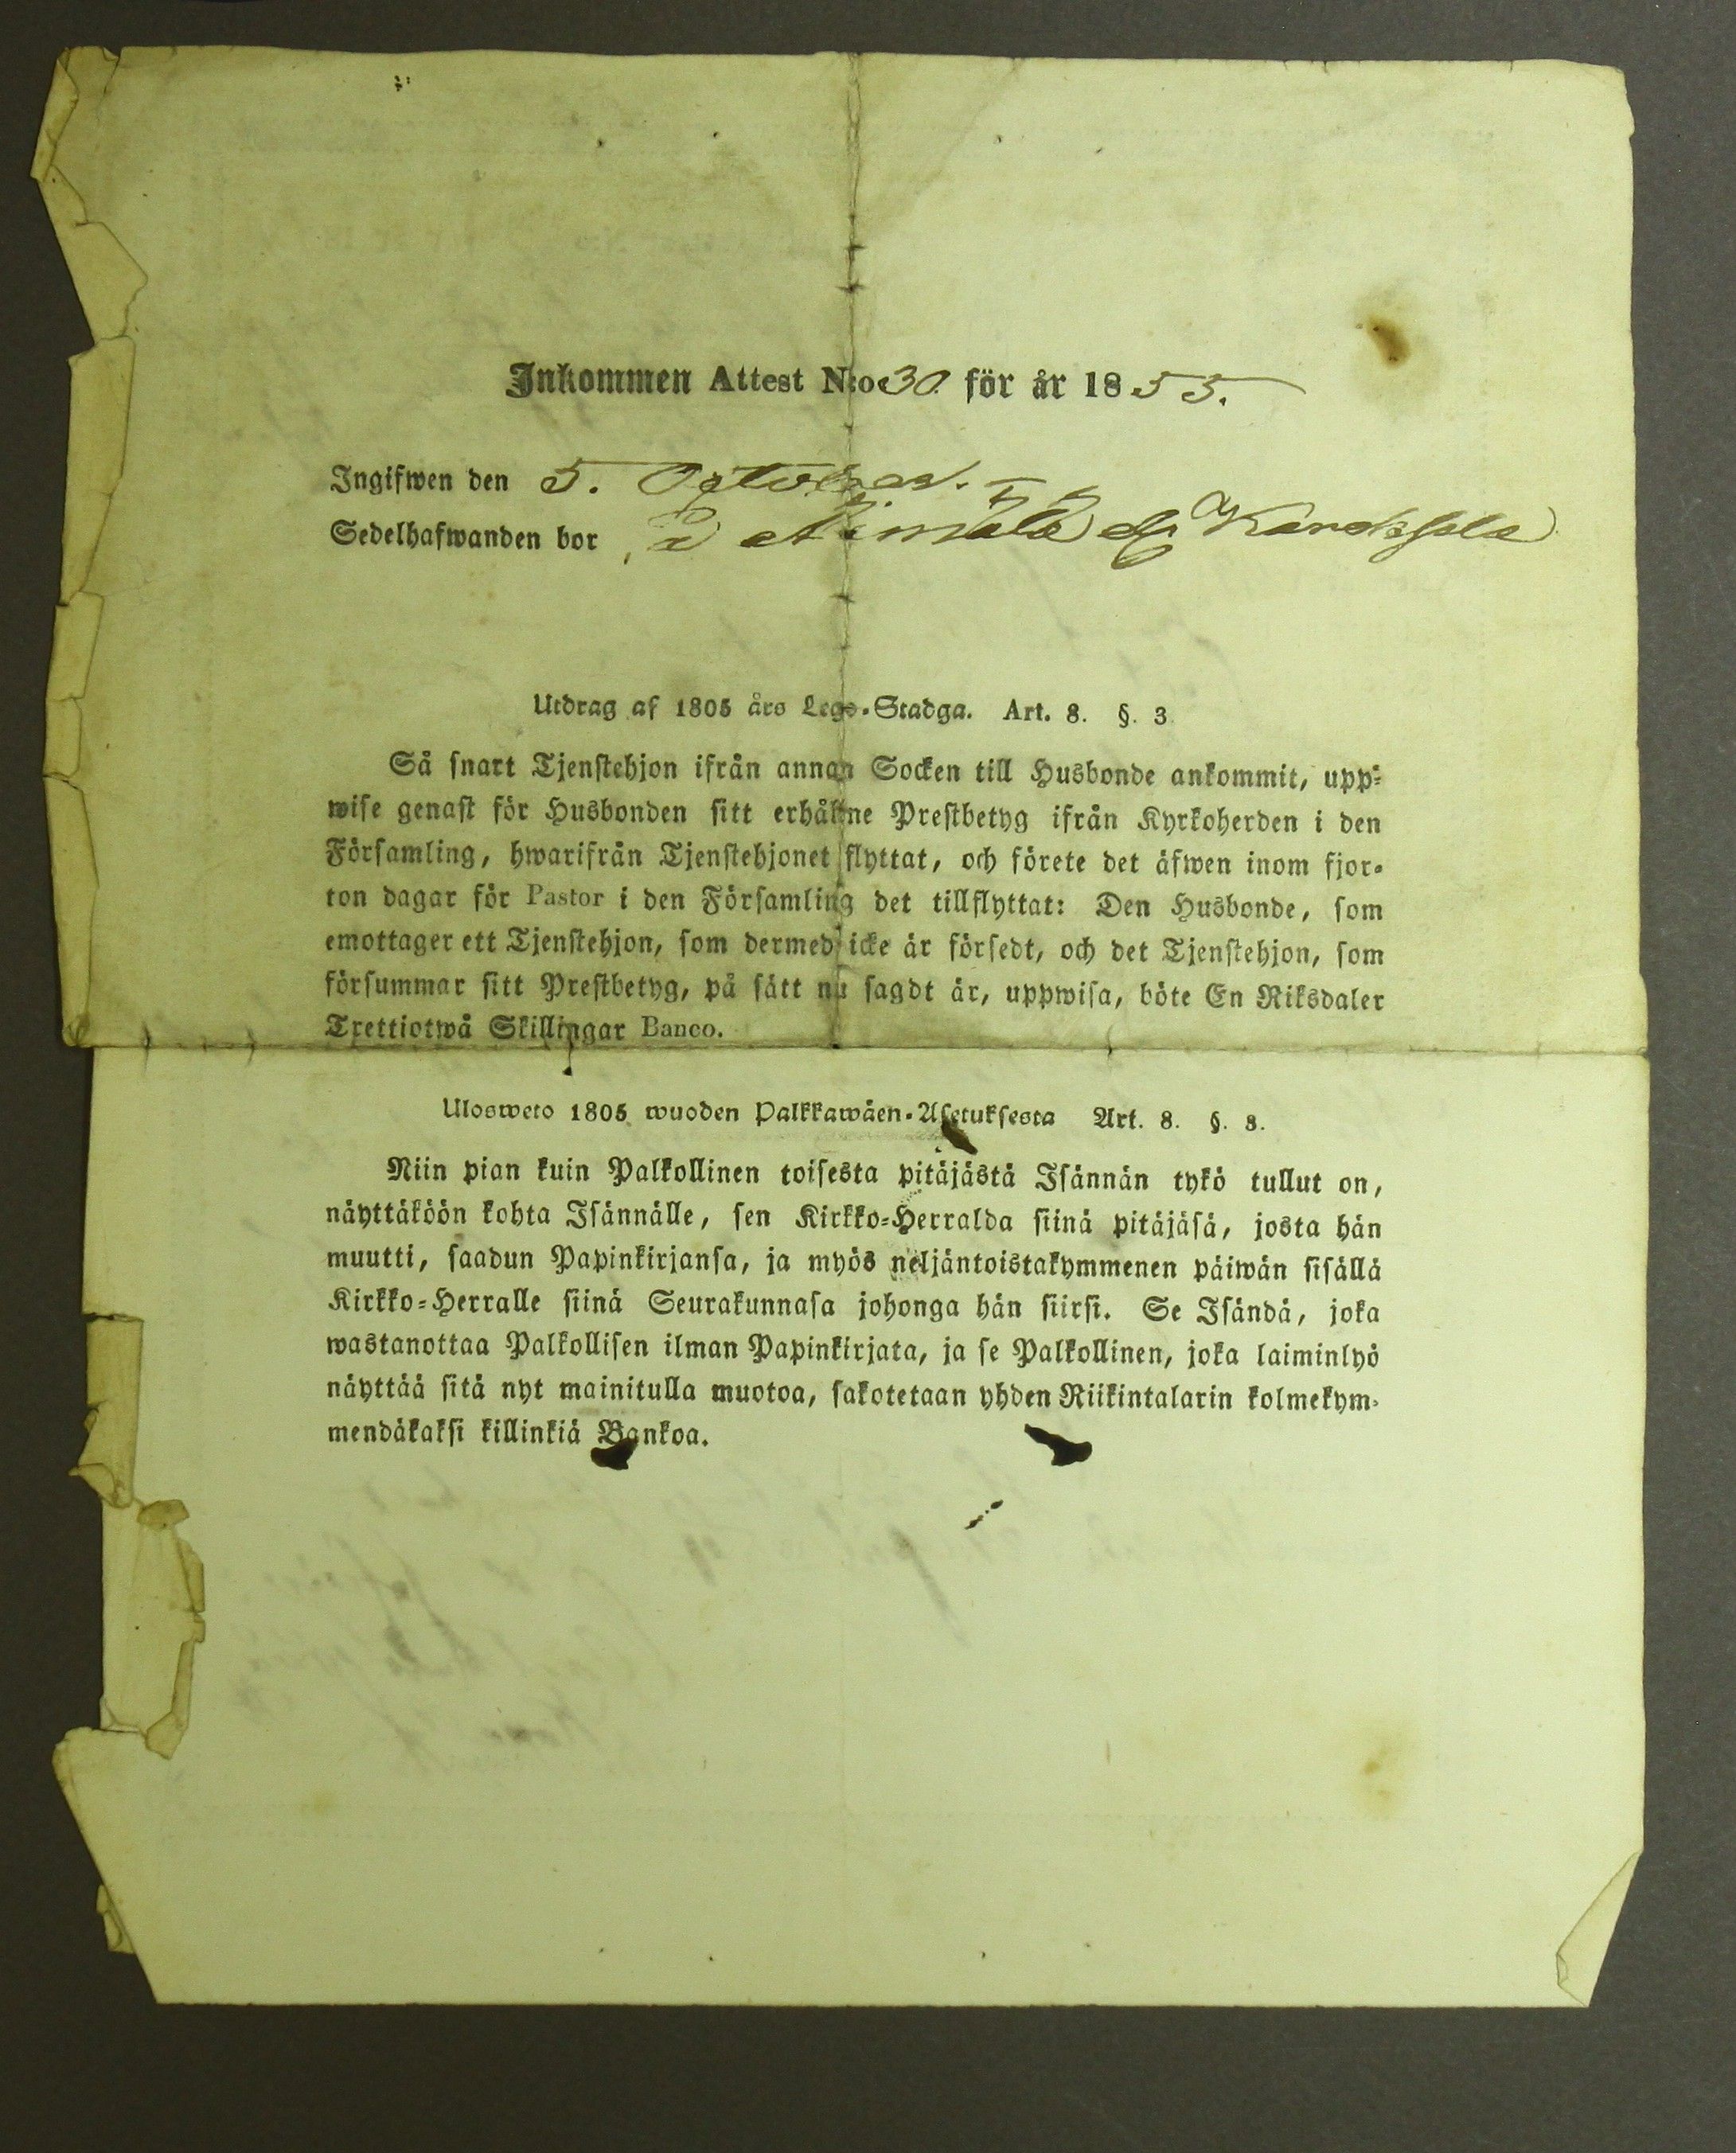 Inkommen Attest N:o 30 för år 1855.
Ingifwen den 5. October.
Sedelhafwanden bor på
Utdrag af 1805 års Lego-Stadga. Art. 8. §. 3
Så snart Tjenstehjon ifrån annan Socken till Husbonde ankommit, upp-
wise genast för Husbonden sitt erhållne Prestbetyg ifrån Kyrkoherden i den
Församling, hwarifrån Tjenstehjonet flyttat, och förete det äfwen inom fjor-
ton dagar för Pastor i den Församling det tillflyttat: Den Husbonde, som
emottager ett Tjenstehjon, som dermed icke är försedt, och det Tjenstehjon, som
försummar sitt Prestbetyg, på sätt nu sagdt är, uppwisa, böte En Riksdaler
Trettiotwå Skillingar Banco.
Ulosweto 1805 wuoden Palkkawäen-Asetuksesta Art. 8. §. 3.
Niin pian kuin Palkollinen toisesta pitäjästä Isännän tykö tullut on,
näyttäköön kohta Isännälle, sen Kirkko-Herralda siinä pitäjäsä, josta hän
muutti, saadun Papinkirjansa, ja myös neljäntoistakymmenen päiwän sisällä
Kirkko-Herralle siinä Seurakunnasa johonga hän siirsi. Se Isändä, joka
wastanottaa Palkollisen ilman Papinkirjata, ja se Palkollinen, joka laiminlyö
näyttää sitä nyt mainitulla muotoa, sakotetaan yhden Riikintalarin kolmekym-
mendäkaksi killinkiä Bankoa.